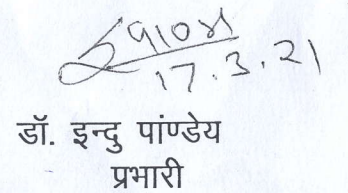 17.3.21
डॉ. इन्दु पांण्डेय
प्रभारी